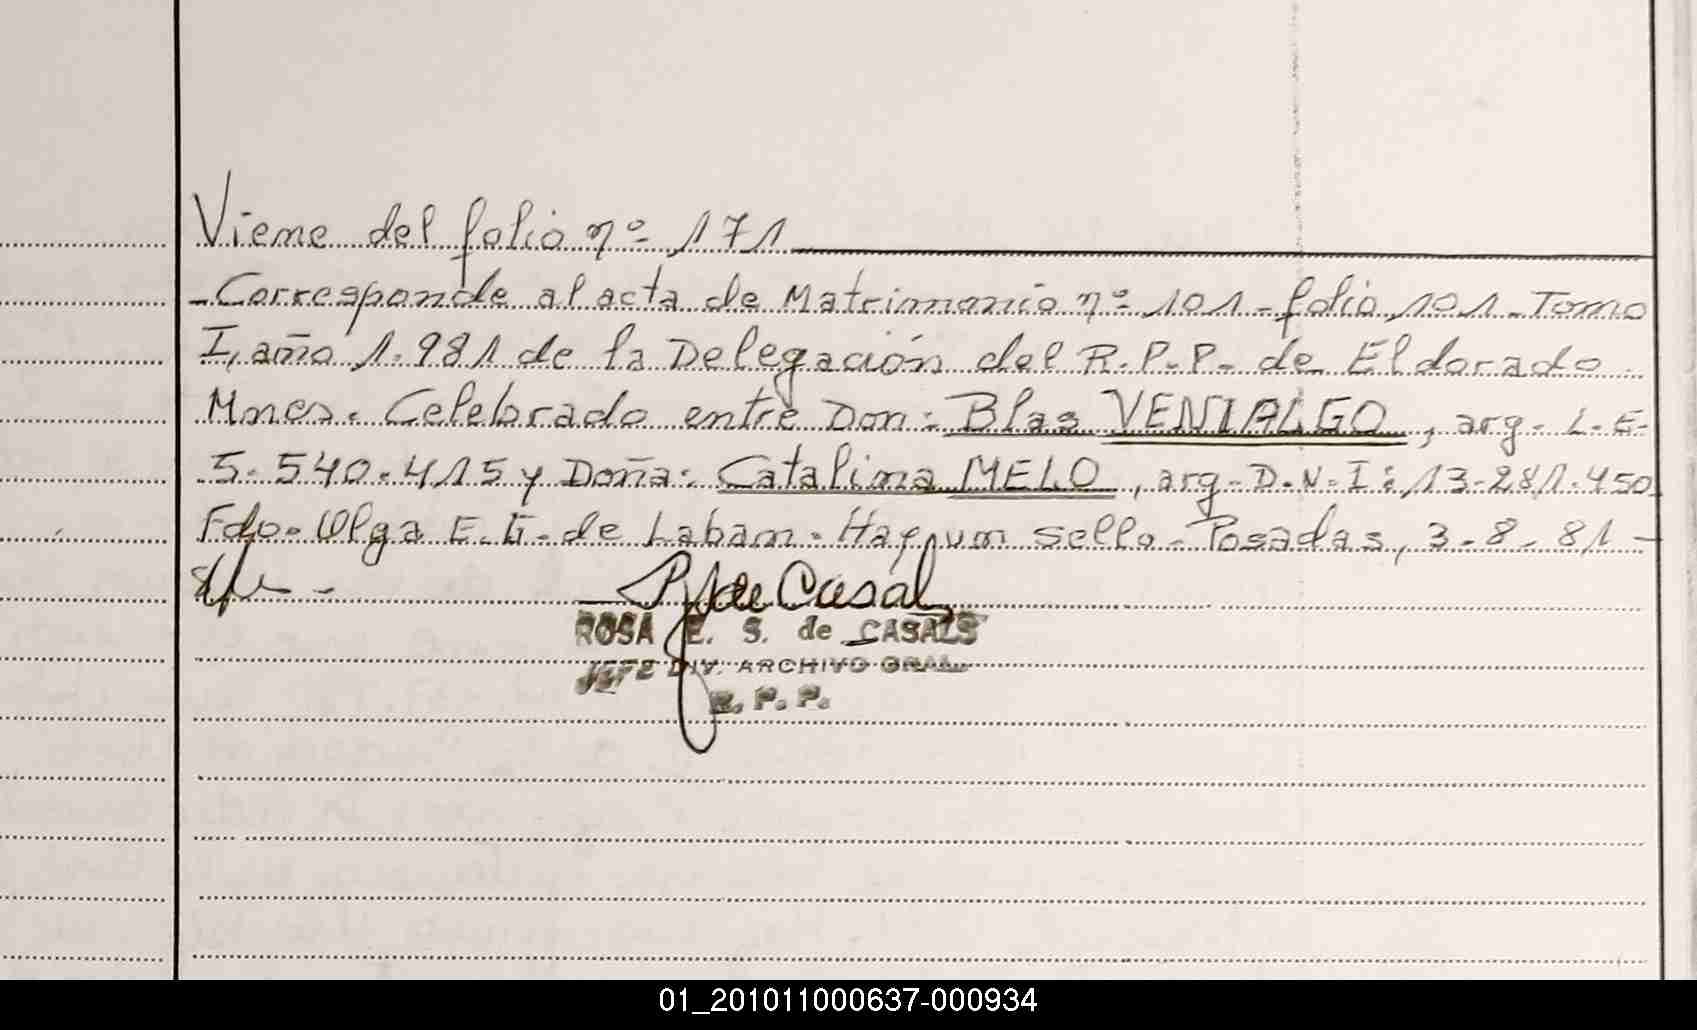 Viene del folio nº 171
-Corresponde al acta de Matrimonio nº 101-folio 101-Tomo
I, año 1.981 de la Delegación del R.P.P. de Eldorado
Mnes. Celebrado entre Don: Blas VENIALGO, arg. L.E.
5.540.415 y Doña: Catalina MELO, arg. D.N.I: 13.281.450
Fdo. Olga E.G. de Laban. Hay un sello. Posadas, 3-8-81-
R de Casals
ROSA E. S. de CASALS
JEFE DIV. ARCHIVO GRAL.
R. P. P.
01_201011000637-000934